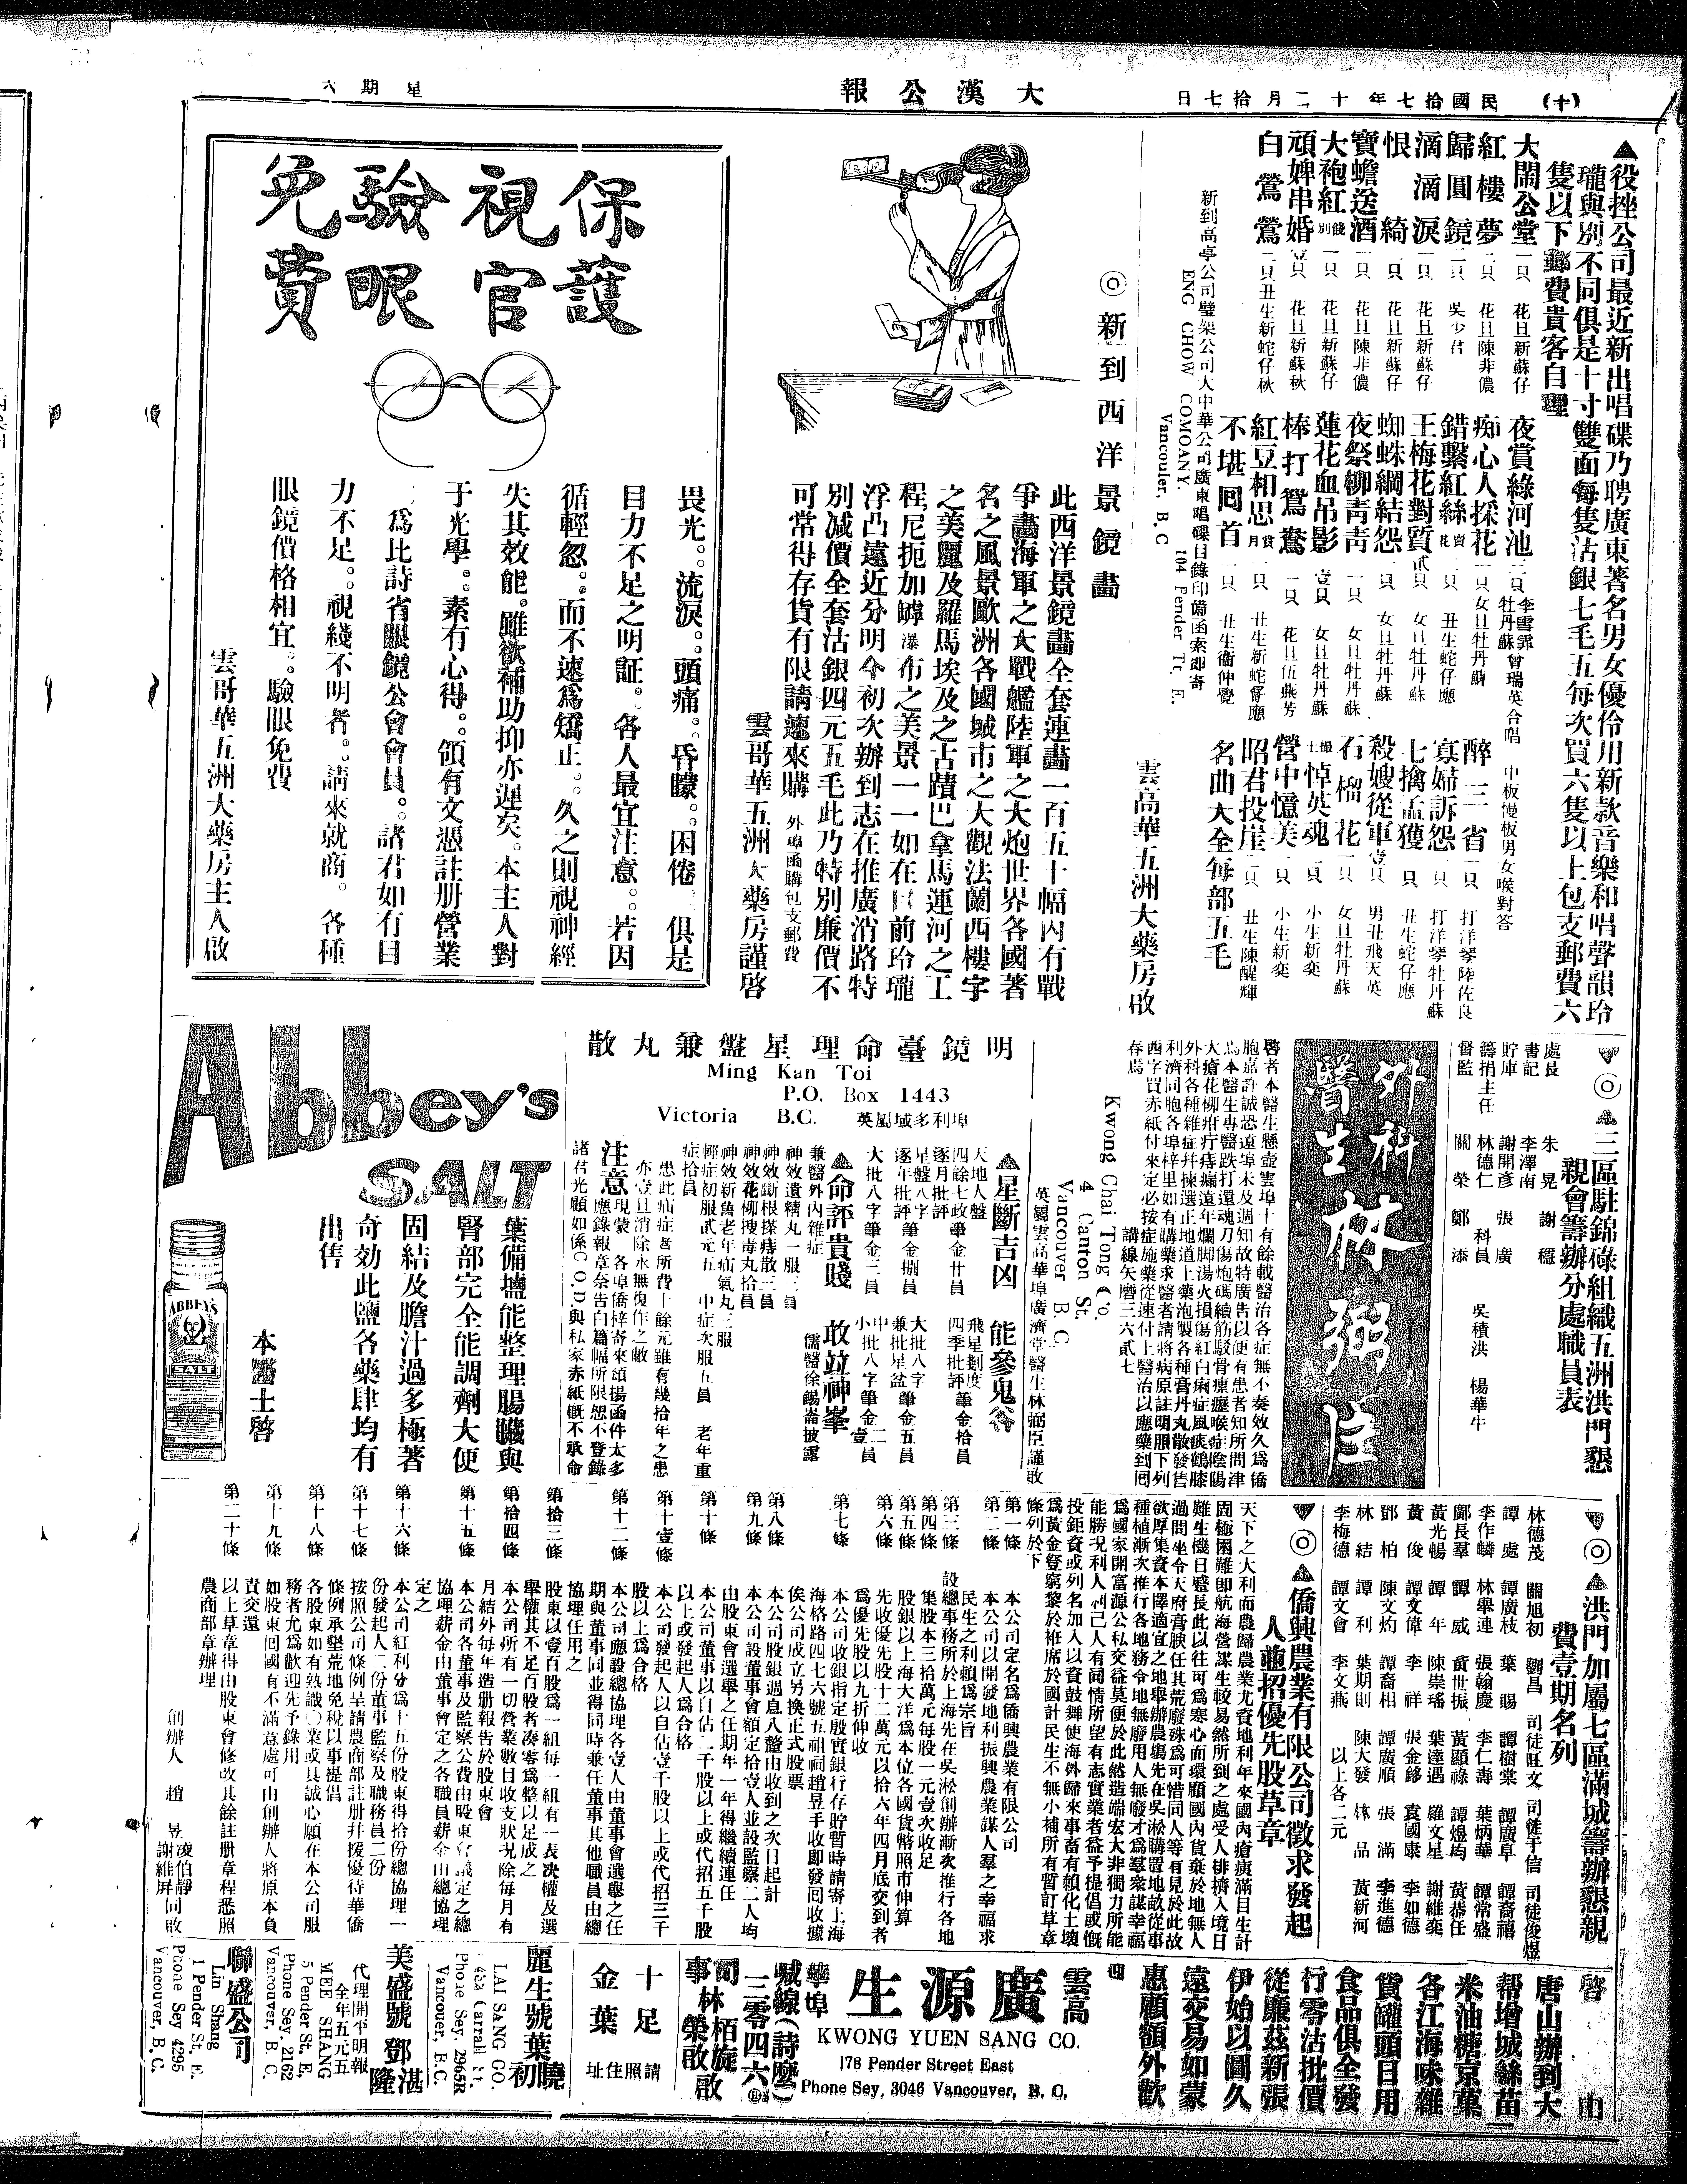 (十)
民國拾七年十二月拾七日
大漢公報
星期六
▲役挫公司最近新出唱碟乃聘廣東著名男女優伶用新款音樂和唱聲韻玲
瓏與別不同俱是十寸雙面每隻沽銀七毛五每次買六隻以上包支郵費六
隻以下郵費貴客自理
大閙公堂 一只 花旦新蘇仔
紅樓夢 二只 花旦陳非儂
歸圓鏡 二只 吳少君
滴滴淚 一只 花旦新蘇仔
恨綺 一只 花旦新蘇仔
寶蟾送酒 一只 花旦陳非儂
大袍紅 一只 花旦新蘇仔
頑婢串婚 壹只 花旦新蘇秋
白鶯鶯 二只 丑生新蛇仔秋
夜賞綠河池 二只 李雪霏 牡丹蘇 曾瑞英合唱 中板慢板男女喉對答
痴心人採花 一只 女旦牡丹蘇
錯繫紅絲 一只 丑生蛇仔應
王梅花對質 貳只 女旦牡丹蘇
蜘蛛網結怨 一只 女旦牡丹蘇
夜祭柳青青 一只 女旦牡丹蘇
蓮花血吊影 壹只 女旦牡丹蘇
棒打鴛鴦 一只 花旦伍燕芳
紅豆相思 一只 丑生新蛇仔應
不堪囘首 一只 丑生衛仲覺
醉三省 一只 打洋琴陸佐良
寡婦訴怨 一只 打洋琴牡丹蘇
七擒孟獲 一只 丑生蛇仔應
殺嫂從軍 壹只 男丑飛天英
石榴花 一只 女旦牡丹蘇
悼英魂 一只 小生新奕
營中憶美 一只 小生新奕
昭君投崖 二只 丑生陳醒輝
名曲大全每部五毛
新到高亭公司璧架公司大中華公司廣東唱碟目錄印備函索即寄
ENG CHOW COMOANY.
104 Pender Tr, E.
Vancouler, B. C
雲高華五洲大藥房啟
◎新到西洋景鏡畫
此西洋景鏡畫全套連畫一百五十幅內有戰
爭畫海軍之大戰艦陸軍之大炮世界各國著
名之風景歐洲各國城市之大觀法蘭西樓宇
之美麗及羅馬埃及之古蹟巴拿馬運河之工
程尼扼加罅瀑布之美景一一如在目前玲瓏
浮凸遠近分明今初次辦到志在推廣消路特
別減價全套沽銀四元五毛此乃特別廉價不
可常得存貨有限請速來購 外埠函購包支郵費
雲哥華五洲大藥房謹啓
保護視官
驗眼免費
畏光。流淚。頭痛。昏矇。困倦 俱是
目力不足之明証。各人最宜注意。若因
循輕忽。而不速爲矯正。久之則視神經
失其效能。雖欲補助抑亦遲矣。本主人對
于光學。素有心得。領有文憑註册營業
爲比詩省眼鏡公會會員。諸君如有目
力不足。視綫不明者。請來就商。各種
眼鏡價格相宜。驗眼免費
雲哥華五洲大藥房主人啟
▲三區駐錦碌組織五洲洪門懇
親會籌辦分處職員表
處長 朱晃 謝穩
書記 李澤南
貯庫 謝開彥 張廣
籌捐主任 林德仁 科員 吳積洪 楊華牛
督監 關榮 鄭添
外科
醫生林弼臣
啓者本醫生懸壺雲埠十有餘載醫治各症無不奏效久爲僑
胞嘉許誠恐遠埠未及週知故特廣告以便有患者知所問津
Kwong Chai Tong Co.
4 Canton St.
Vancouver B. C
英屬雲高華埠廣濟堂醫生林弼臣謹啟
講線矢磨三六貳七
明鏡臺命理星盤兼丸散
Ming Kan Toi
P.O. Box 1443
Victoria B.C.
英屬域多利埠
▲星斷吉凶 能參鬼谷
天地人盤
四餘七政筆金廿員 飛星劃度
逐月批評 四季批評筆金拾員
星盤八字
逐年批評筆金捌員 兼批星盆筆金五員
大批八字筆金三員
▲命評貴賤 敢並神峯
兼醫外內雜症 儒醫徐錫崙披露
神效遺精丸一服三員
神效斷根探痔散三員
神效花柳搜毒丸拾員
神效新舊老年疝氣丸三服
輕症初服貳元五 中症次服五員 老年重
症拾員
患此疝症甚所費十餘元雖有幾拾年之患
亦壹旦消除永無復作之敝
注意 現蒙各埠僑梓寄來頌揚函件太多
應錄報章奈告白篇幅所限恕不登錄
諸付光顧如係C.O.D.與私家赤紙概不承命
Abbey's
SALT
葉備壚能整理腸臟與
腎部完全能調劑大便
固結及膽汁過多極著
奇効此鹽各藥肆均有
出售
本醫士啓
ABBEY'S
SALT
▲洪門加屬七區滿城籌辦懇親
費壹期名列
林德茂 關旭初 劉昌 司徒旺文 司徒于信 司徒俊煜
譚處 譚廣枝 葉賜 譚樹棠 譚廣阜 譚裔禧
李作麟 林舉連 張翰慶 李仁壽 葉炳華 譚常盛
鄺長羣 譚威 黃世振 黃顯祿 譚煜均 黃恭任
黃光暢 譚年 陳崇瑤 葉達遇 羅文星 謝維奕
黃俊 譚文偉 李祥 張金鉹 袁國康 李如德
鄧柏 陳文灼 譚裔相 譚廣順 張滿 李進德
林結 譚利 葉期則 陳大發 林品 黃新河
李梅德 譚文會 李文燕 以上各二元
▲僑興農業有限公司徵求發起
人並招優先股草章
天下之大利而農歸農業尤資地利年來國內瘡痍滿目生計
困極困難卽航海營謀生較易然所到之處受人排擠入境日
難生機日蹙長此以往可爲寒心而環顧國內貨棄於地無人
過問坐令天府膏腴任其荒廢殊爲可惜同人等有見於此故
欲厚集資本擇適宜之地舉辦農塲先在吳淞購置地畝從事
種植漸次推行各地務令地無廢用人無廢才爲羣衆謀幸福
爲國家開富源公私交益莫便於此然造端宏大非獨力所能
能勝况利人利己人有同情所望有志實業者益予提倡或慨
投鉅資或列名加入以資鼓舞使海外歸來事畜有賴化土壤
爲黃金登窮黎於袵席於國計民生不無小補所有暫訂草章
條列於下
第一條 本公司定名爲僑興農業有限公司
第二條 本公司以開發地利振興農業謀人羣之幸福求
民生之利賴爲宗旨
第三條 設總事務所於上海先在吳淞創辦漸次推行各地
第四條 集股本三拾萬元每股一元壹次收足
第五條 股銀以上海大洋爲本位各國貨幣照市伸算
第六條 先收優先股十二萬元以拾六年四月底交到者
爲優先股以九折伸收
第七條 本公司收銀指定殷實銀行存貯暫時請寄上海
海格路四七六號五祖祠趙昱手收卽發囘收據
俟公司成立另換正式股票
第八條 本公司股銀週息八釐由收到之次日起計
第九條 本公司設董事會額定拾壹人並設監察二人均
由股東會選舉之任期年一年得繼續連任
第十條 本公司董事以自佔二千股以上或代招五千股
以上或發起人爲合格
第十壹條 本公司發起人以自佔壹千股以上或代招三千
股以上爲合格
第十二條 本公司應設總協理各壹人由董事會選舉之任
期與董事同並得同時兼任董事其他職員由總
協理任用之
第拾三條 股東以壹百股爲一組每一組有一表決權及選
舉權其不足百股者湊零爲整以足成之
第拾四條 本公司所有一切營業數目收支狀况除每月有
月結外每年造册報告於股東會
第十五條 本公司各董事及監察公費由股東會議定之總
協理薪金由董事會定之各職員薪金由總協理
定之
第十六條 本公司紅利分爲十五份股東得拾份總協理一
份發起人二份董事監察及職務員二份
第十七條 按照公司條例呈請農商部註册幷援優待華僑
條例承墾荒地免稅以事提倡
第十八條 各股東如有熟識◯業或具誠心願在本公司服
務者尤爲歡迎先予錄用
第十九條 如股東囘國有不滿意處可由創辦人將原本負
責交還
第二十條 以上草章得由股東會修改其餘註册章程悉照
農商部章辦理
創辦人 趙昱 凌伯靜 謝維屏 同啟
啓由
唐山辦到大
帮增城絲苗
米油糖京菓
各江海味雜
貨罐頭日用
食品俱全發
行零沽批價
從廉茲新張
伊始以圖久
遠交易如蒙
惠顧額外歡
迎
雲高華埠
廣源生
KWONG YUEN SANG CO.
178 Pender Street East
Phone Sey, 3046 Vancouver, B. C,
喊線(詩麼)三零四六
司事林栢旋 林榮啟
十足金葉
請照住址
麗生號葉曉初
LAI SANG CO.
Phone Sey. 2965R
Vancouver, B.C.
美盛號鄧湛隆
代理開平明報
全年五元五
MEE SHANG
5 Pender St, E,
Phone Sey. 2162
Vancouver, B. C.
聯盛公司
Lin Shang
1 Pender St, E.
Phone Sey 4295
Vancouver, B. C.